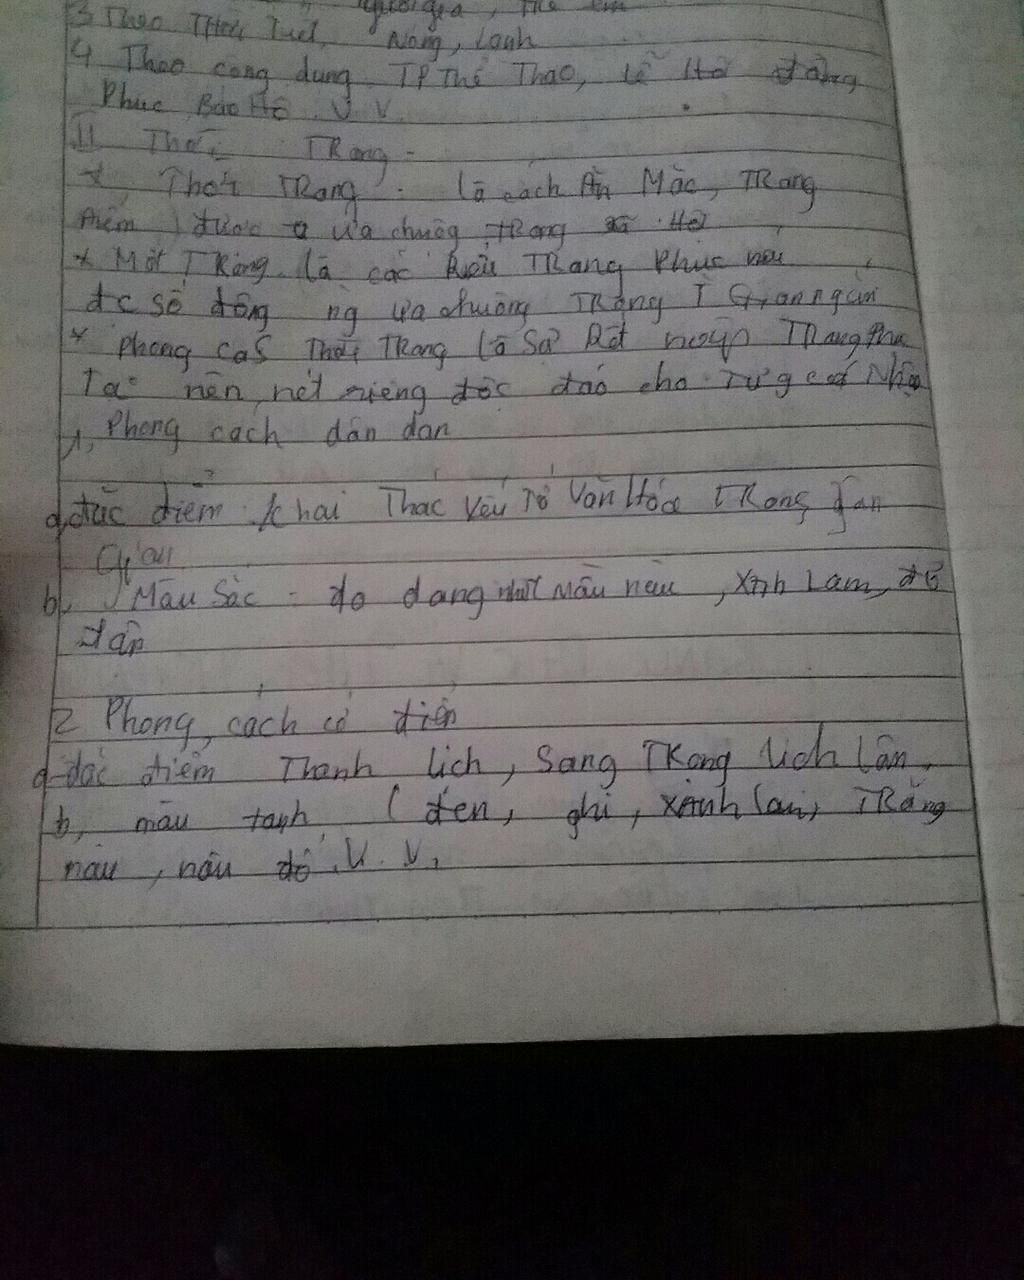 người già, trẻ em
3 Theo Thời Tiết, Nóng, Lạnh
4 Theo công dụng TP Thể Thao, Lễ Hội đồng
Phục, Bảo Hộ. V. V.
II Thời TRang -
*, Thời TRang : là cách Ăn Mặc, TRang
điểm được ưa chuộng trong xã Hội
* Mốt TRang là các kiểu TRang Phục
đc số đông ng ưa chuộng TRong T Gian ngắn
* phong cách Thời TRang là Sự kết hợp TRang Phục
Tạo nên nét riêng độc đáo cho từng cá Nhân
1, Phong cách dân dan
a, đặc điểm : khai Thác Yếu Tố Văn Hóa TRong dân
Gian
b, Màu Sắc : đa dạng như Mầu nâu, xanh Lam, đỏ
đậm
2 Phong cách cổ điển
a đặc điểm Thanh lịch, Sang TRọng lịch lãm,
b, màu ( đen, ghi, xanh lam, TRắng
nâu, nâu đỏ. V. V,